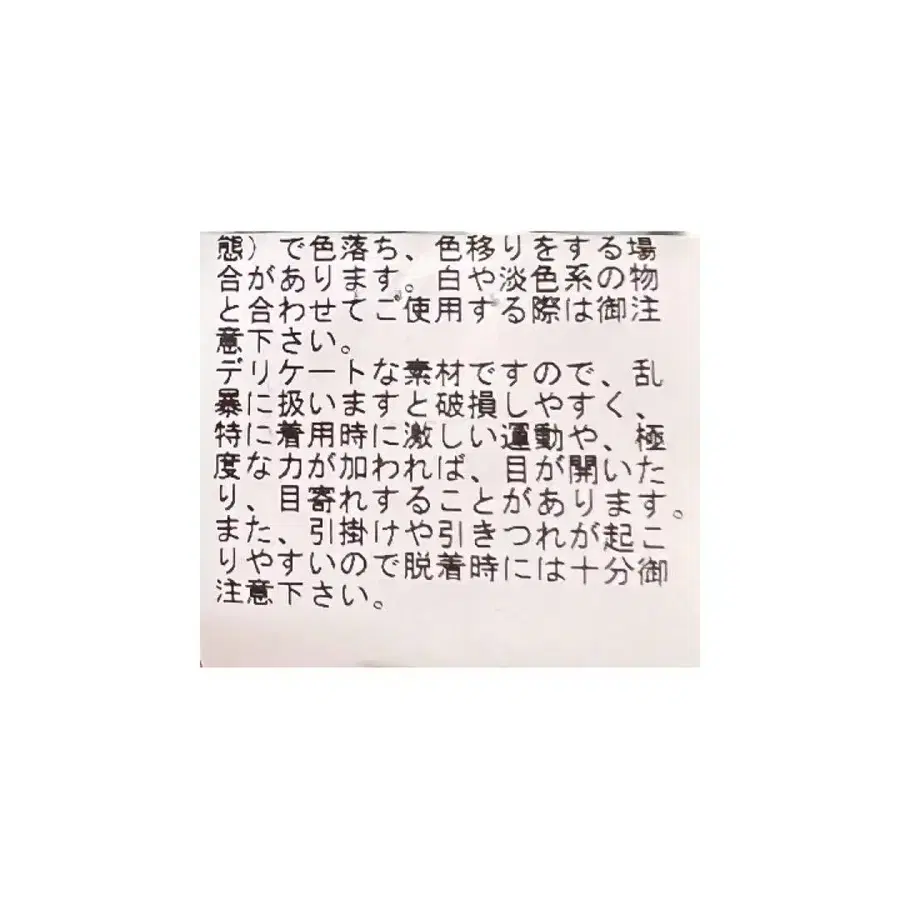 態）で色落ち、色移りをする場
合があります。白や淡色系の物
と合わせてご使用する際は御注
意下さい。
デリケートな素材ですので、乱
暴に扱いますと破損しやすく、
特に着用時に激しい運動や、極
度な力が加われば、目が開いた
り、目寄れすることがあります。
また、引掛けや引きつれが起こ
りやすいので脱着時には十分御
注意下さい。